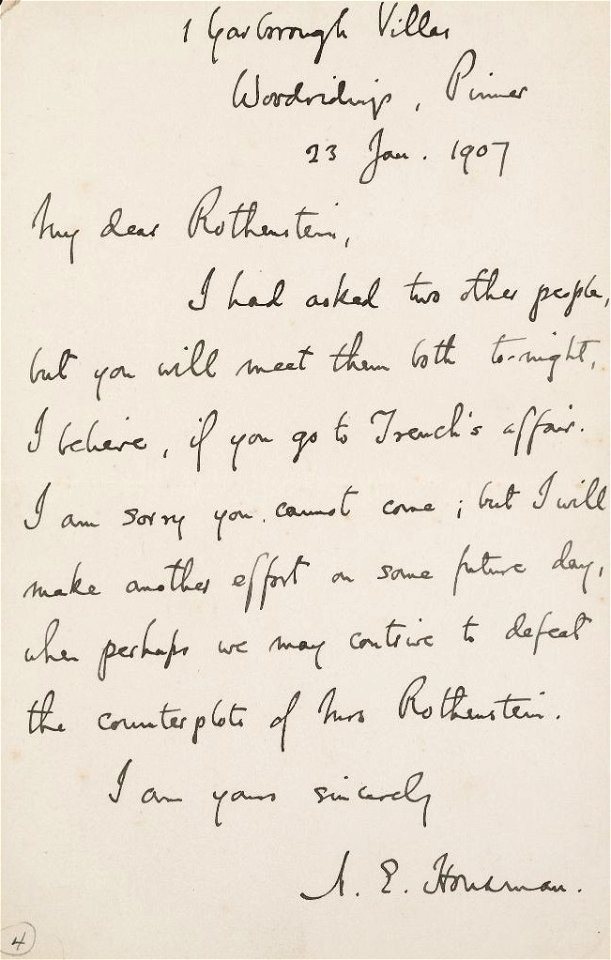 1 Yarborough Villas
Woodridings, Pinner
23 Jan. 1907
My dear Rothenstein,
I had asked two other people,
but you will meet them both to-night,
I believe, if you go to Trench's affair.
I am sorry you cannot come; but I will
make another effort on some future day,
when perhaps we may contrive to defeat
the counterplots of Mrs Rothenstein.
I am yours sincerely
A. E. Housman.
4